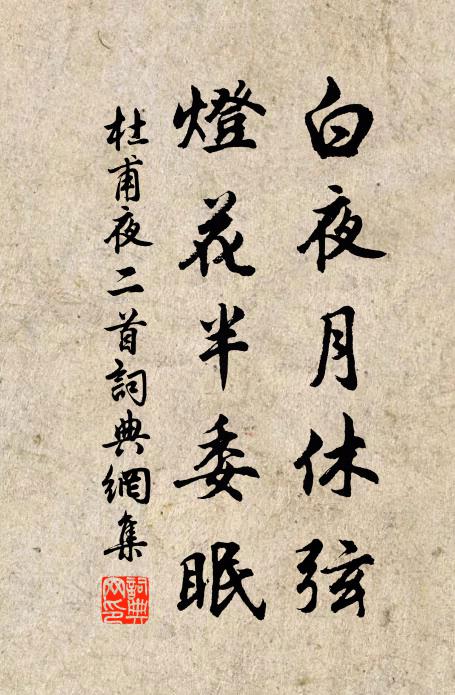 白夜月休弦
燈花半委眠
杜甫夜二首詞典網集
詞典
网印